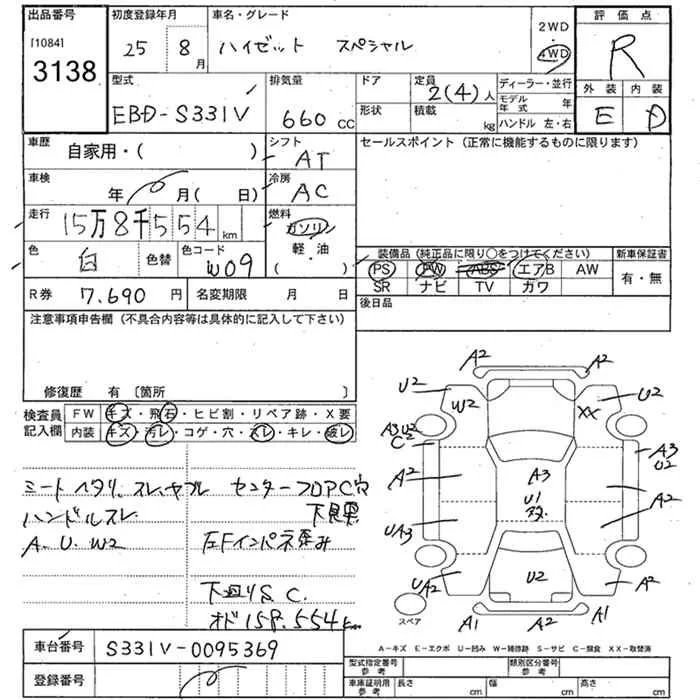 出品番号
[1084]
3138
初度登録年月
25年 8月
車名・グレード
ハイゼット スペシャル
2WD
4WD
評価点
R
外装 内装
E D
型式
EBD-S331V
排気量
660 cc
ドア
形状
定員
2(4)人
積載
kg
ディーラー・並行
モデル年式 年
ハンドル 左・右
車歴
自家用・( )
シフト
AT
セールスポイント (正常に機能するものに限ります)
車検
年 月( 日)
冷房
AC
走行
15万8千554 km
燃料
ガソリン
軽・油
( )
色
白
色替
色コード
W09
装備品 (純正品に限り○をつけてください)
新車保証書
PS PW ABS エアB AW
SR ナビ TV カワ
有・無
R券 7.690 円
名変期限 月 日
後日品
注意事項申告欄 (不具合内容等は具体的に記入して下さい)
修復歴 有 〔箇所 〕
検査員記入欄
FW キズ・飛石・ヒビ割・リペア跡・X要
内装 キズ・汚レ・コゲ・穴・スレ・キレ・破レ
ハンドルスレ
A. U. W2
下廻りS. C.
オド158.554km
A2 A2
U2 W2 XX U2
A3 U2
C2
A3
U2
A2 A3 A2
U1
UA3
UA2 U2 A2
A1 A2 A1
スペア
A-キズ E-エクボ U-凹み W-補修跡 S-サビ C-腐食 XX-取替済
車台番号
S331V-0095369
登録番号
型式指定番号
参考
類別区分番号
参考
車庫証明用
参考
長さ cm
幅 cm
高さ cm